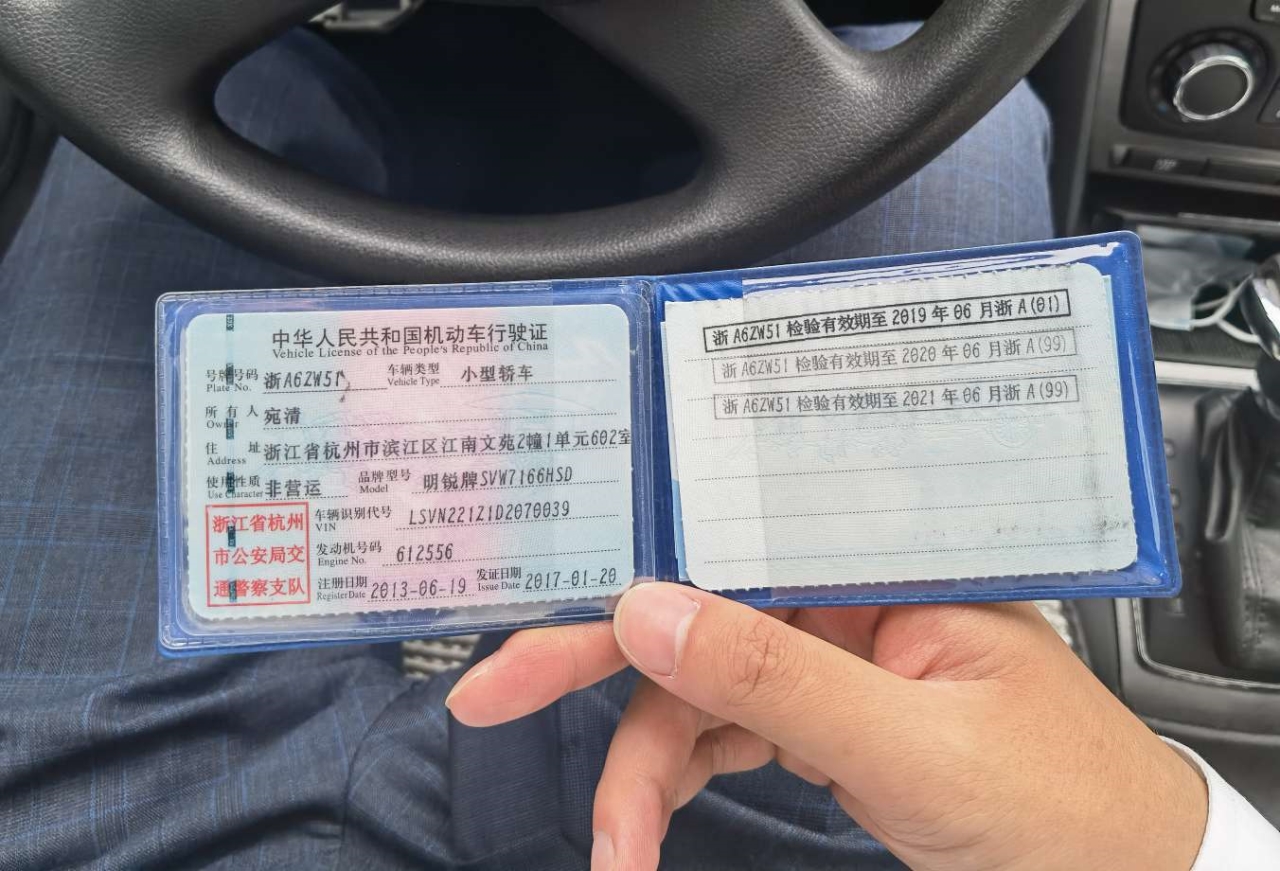 中华人民共和国机动车行驶证
Vehicle License of the People's Republic of China
号牌号码 浙A6ZW51 车辆类型 小型轿车
Plate No. Vehicle Type
所有人 宛清
Owner
住址 浙江省杭州市滨江区江南文苑2幢1单元602室
Address
使用性质 非营运 品牌型号 明锐牌SVW7166HSD
Use Character Model
浙江省杭州
市公安局交
通警察支队
车辆识别代号 LSVN221Z1D2070039
VIN
发动机号码 612556
Engine No.
注册日期 2013-06-19 发证日期 2017-01-20
Register Date Issue Date
浙 A6ZW51 检验有效期至 2019 年 06 月浙 A(01)
浙 A6ZW51 检验有效期至 2020 年 06 月浙 A(99)
浙 A6ZW51 检验有效期至 2021 年 06 月浙 A(99)